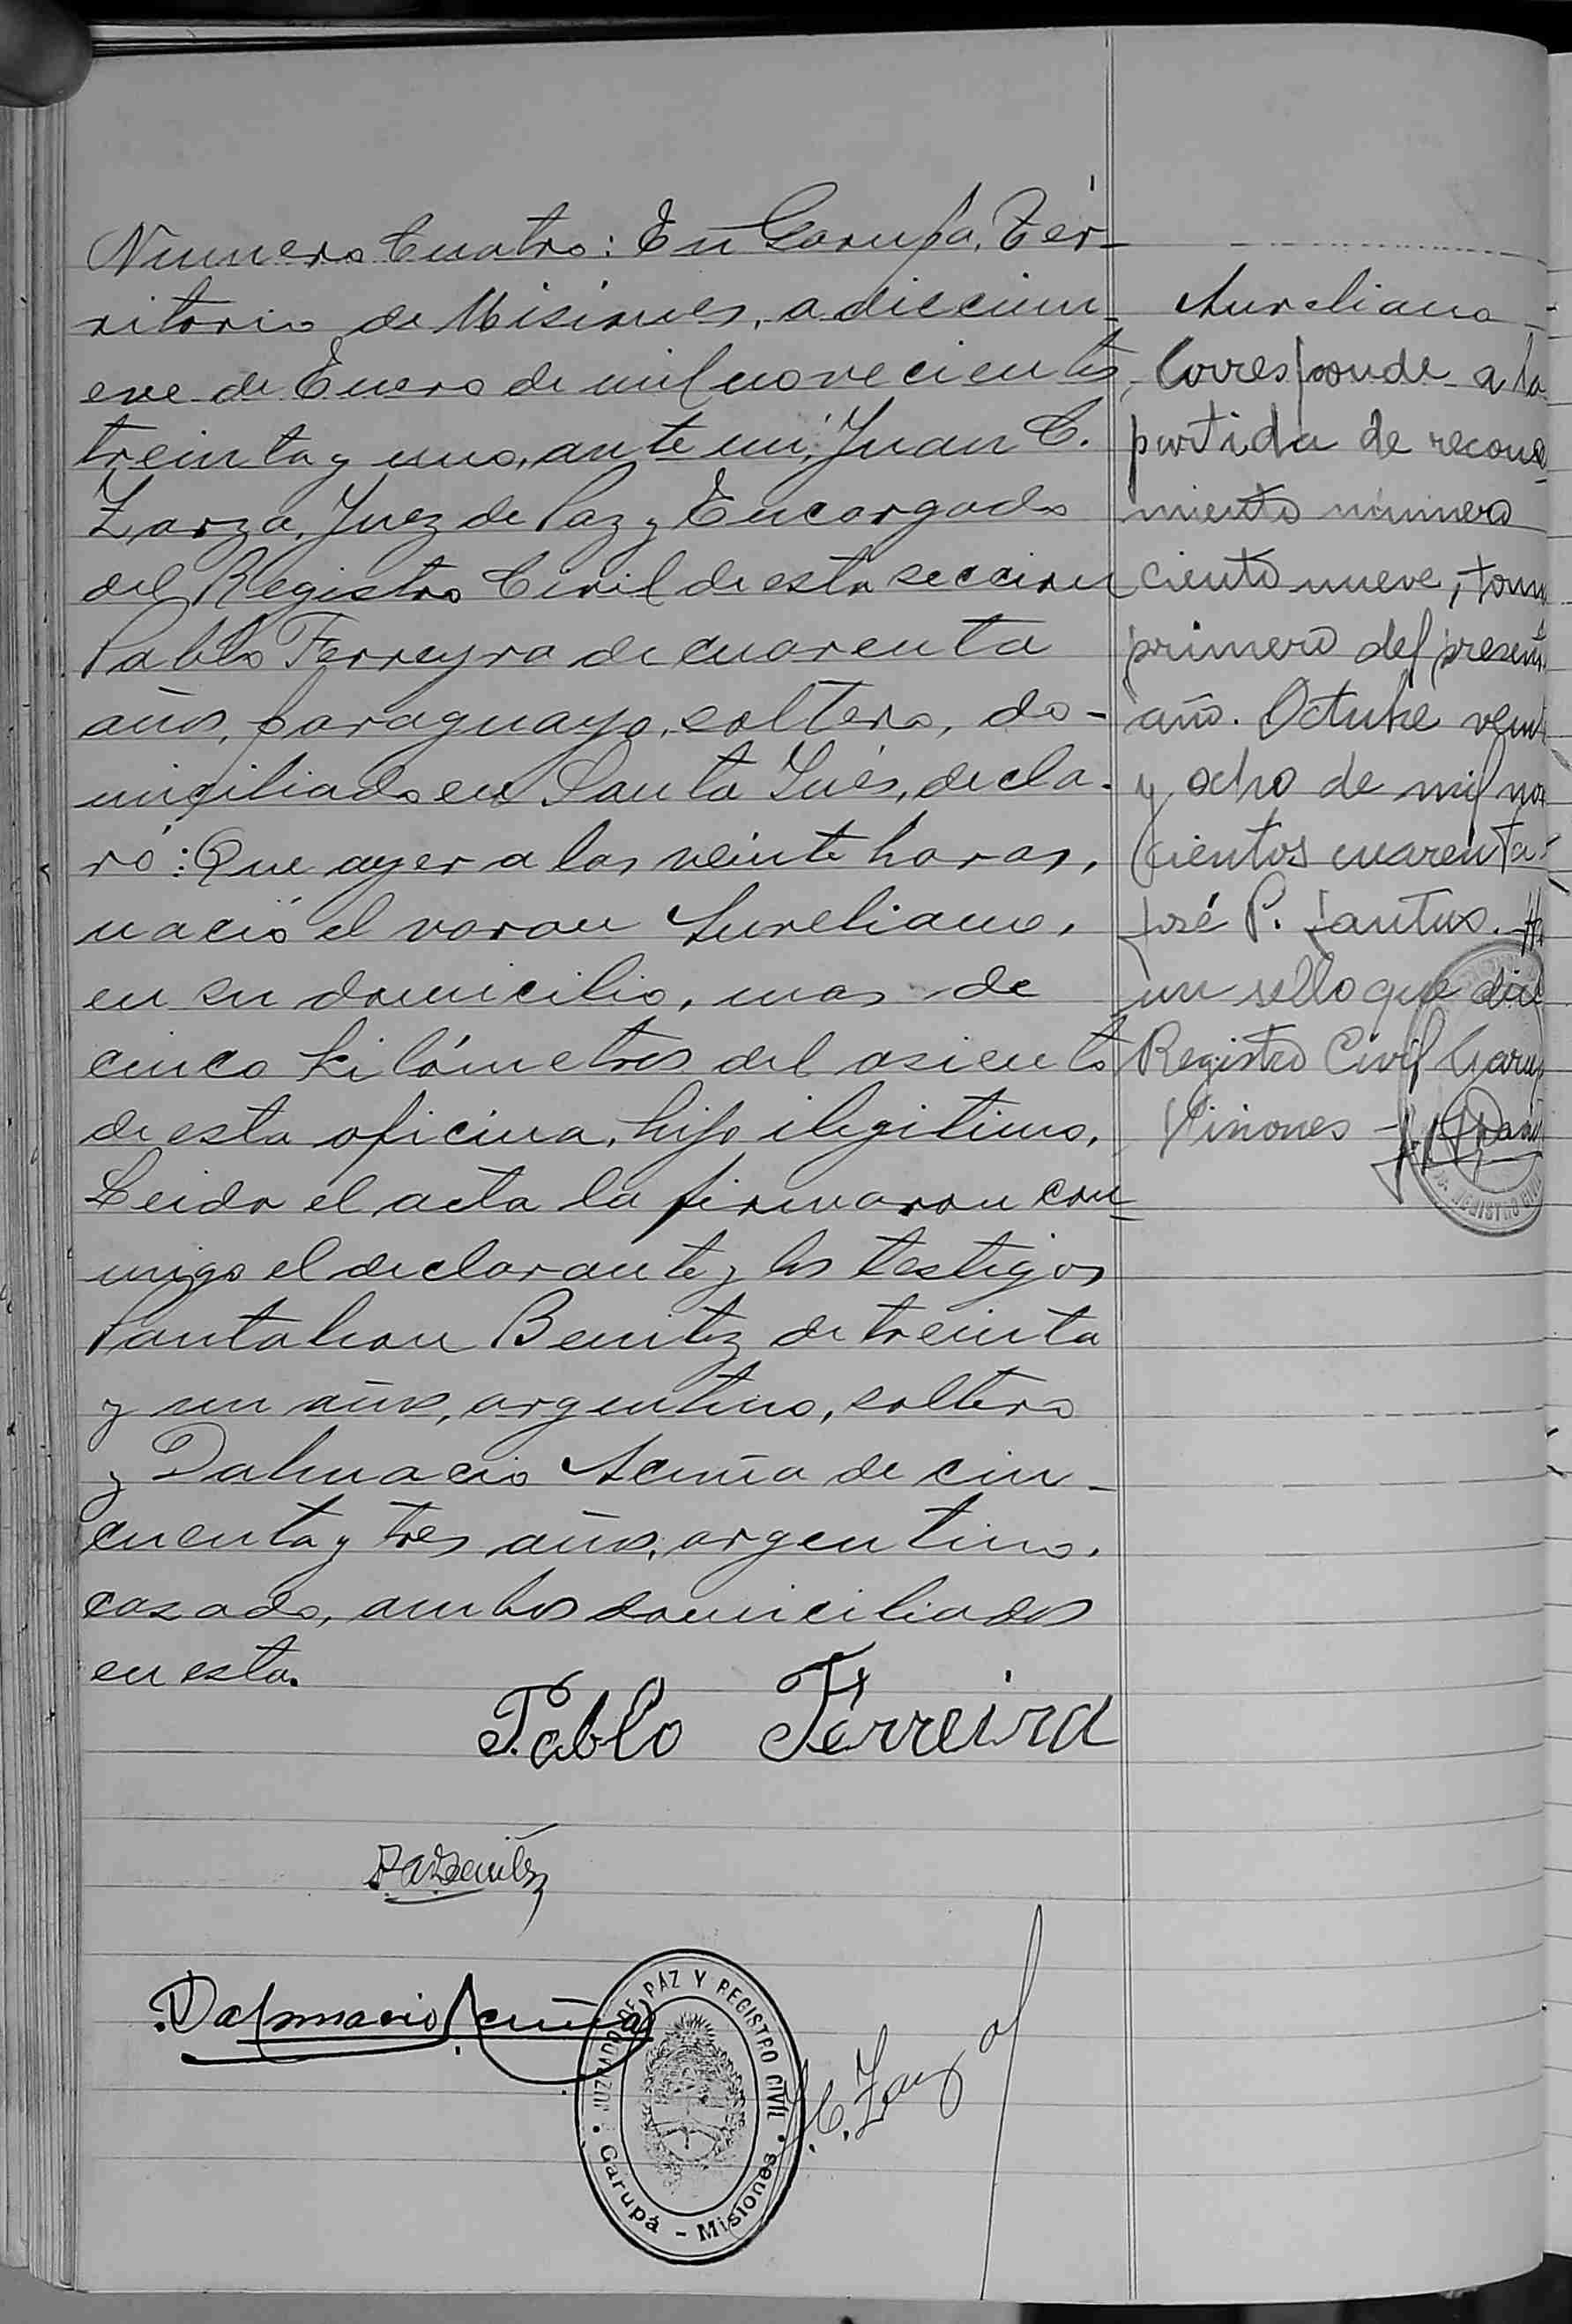 Numero Cuatro: En Garupá, Ter-
ritorio de Misiones, a diecinu-
eve de Enero de mil novecientos
treinta y uno, ante mí, Juan C.
Zarza, Juez de Paz y Encargado
del Registro Civil de esta seccion
Pablo Ferreyra de cuarenta
años, paraguayo, soltero, do-
miciliado en Santa Inés, decla-
ró: Que ayer a las veinte horas,
nació el varon Aureliano,
en su domicilio, mas de
cinco kilómetros del asiento
de esta oficina, hijo ilegitimo,
Leida el acta la firmaron con-
migo el declarante y los testigos
Pantaleon Benitez de treinta
y un años, argentino, soltero
y Dalmacio Acuña de cin-
cuenta y tres años, argentino,
casado, ambos domiciliados
en esta.
Pablo Ferreira
Dalmacio Acuña
J. C. Zarza
JUZGADO DE PAZ Y REGISTRO CIVIL
Garupá - Misiones
Aureliano
Corresponde a la
partida de recono
miento número
ciento nueve, tomo
primero del presente
año. Octubre veinte
y ocho de mil nove
cientos cuarenta.
José P. Santus.
un sello que dice
Registro Civil Garup
Misiones
REGISTRO CIVIL